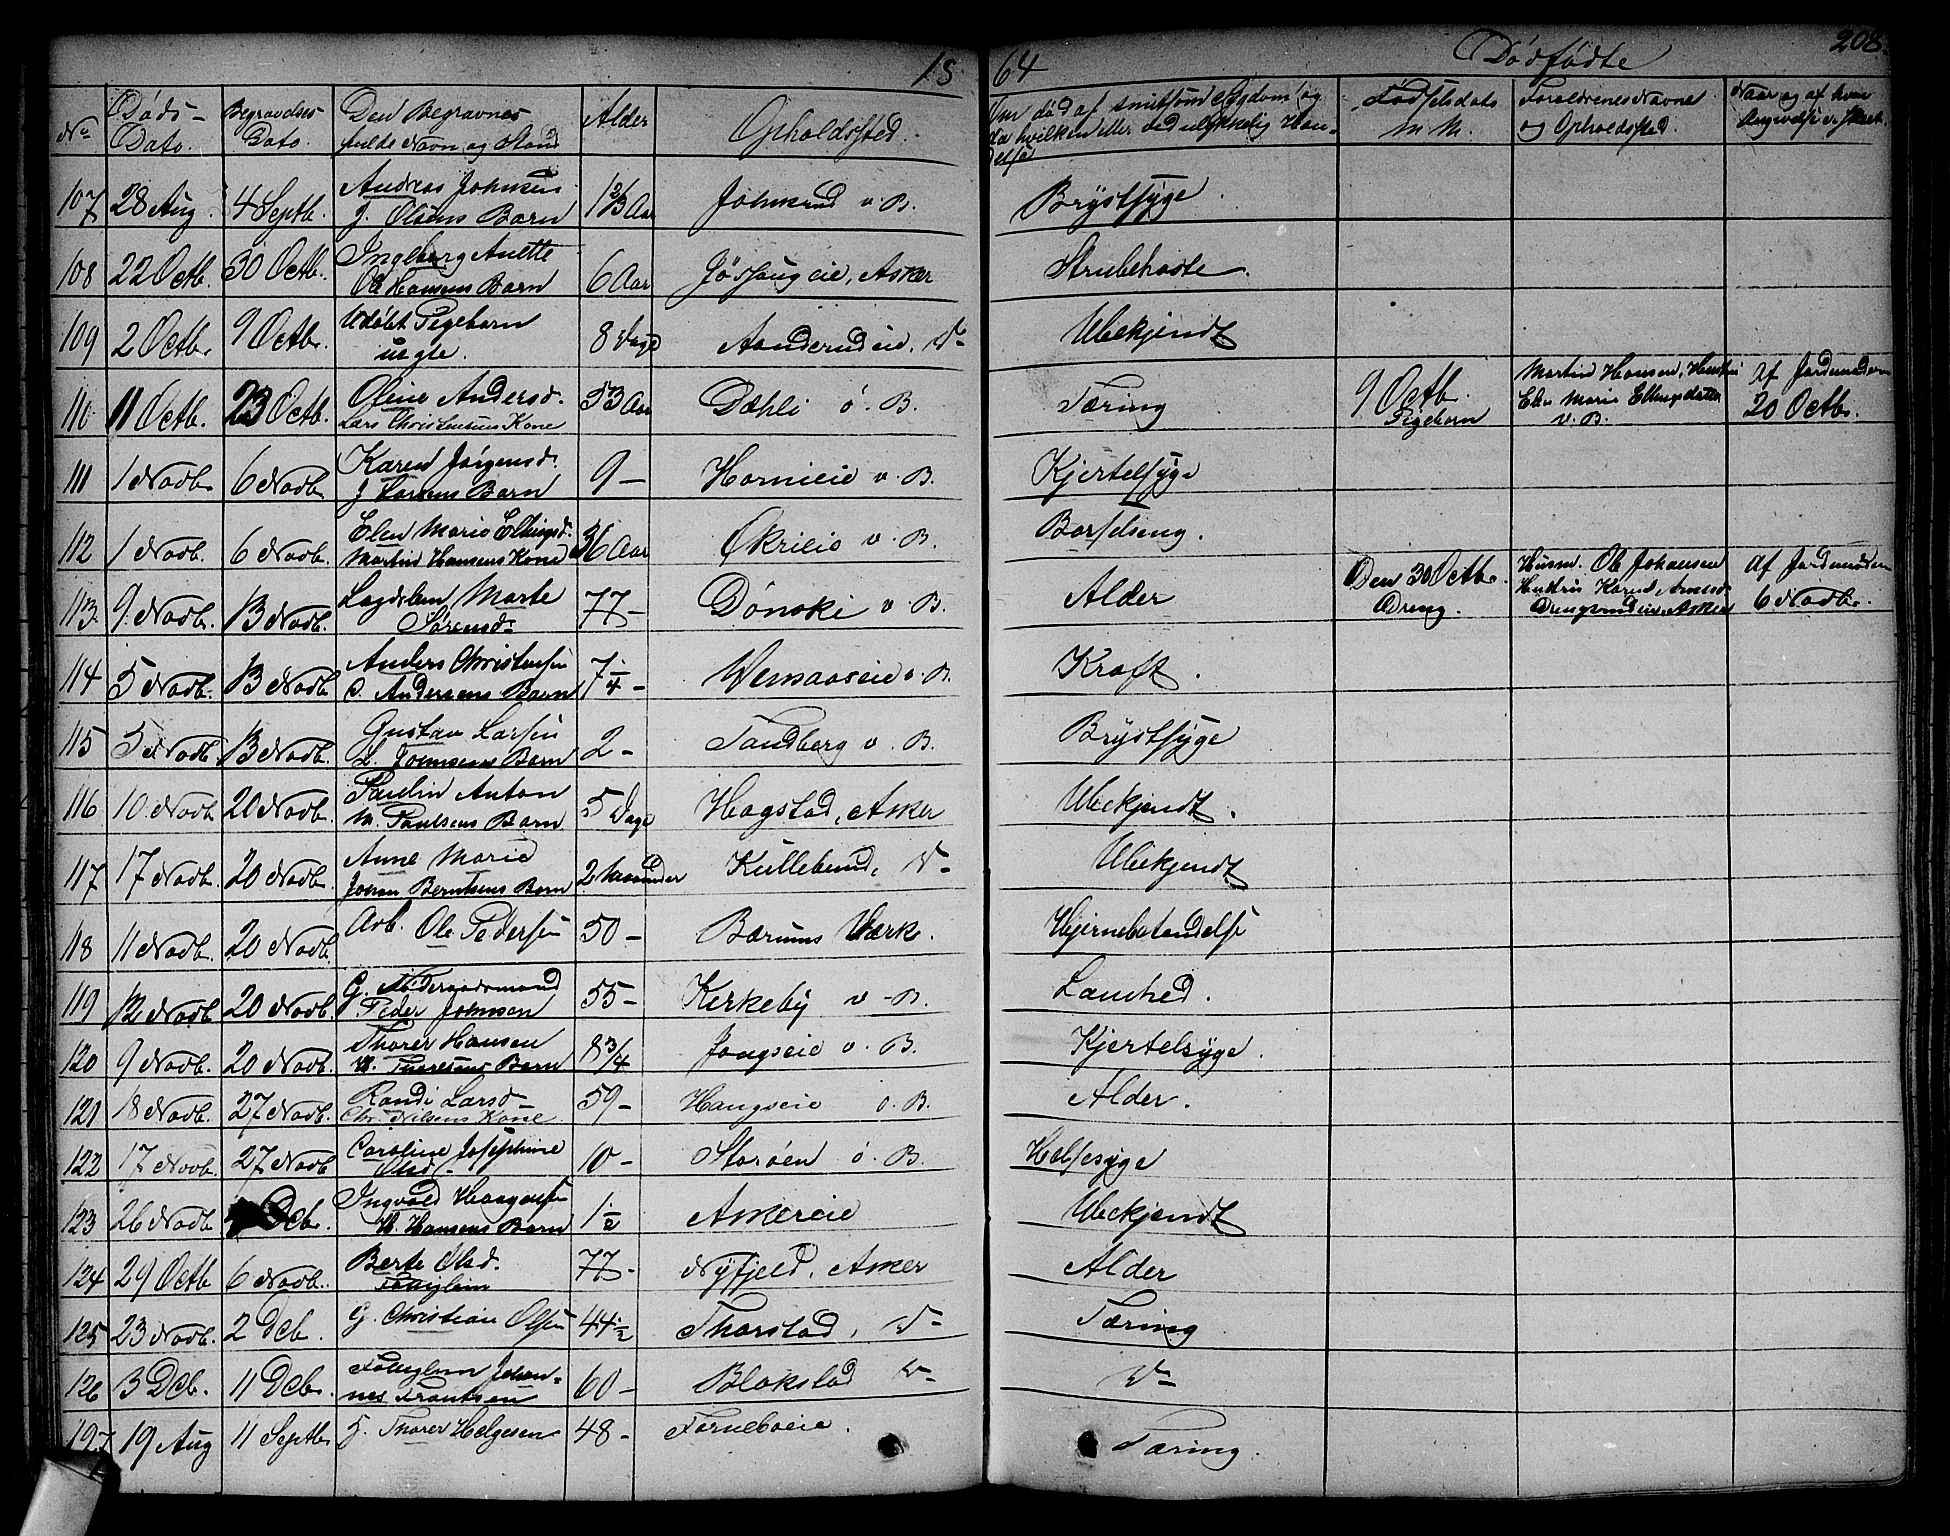 1864 Dødfødte 208.
No Døds-Dato. Begravelses Dato. Den Begravnes fulde Navn og Stand Alder Opholdssted. Om død af smitsom Sygdom og da hvilken eller ved ulykkelig Hændelse Fødselsdato m. M. Forældrenes Navne og Opholdssted. Naar og af hvem Angivelse er skeet.
107 28 Aug. 4 Septb. Andreas Johnsen
J. Olsens Barn 1 2/3 Aar Johnsrud v. B. Brystsyge.
108 22 Octb. 30 Octb. Ingeborg Anette
Ole Hansens Barn 6 Aar Jøssongeie, Asker Strubehoste.
109 2 Octb. 9 Octb. Udøbt Pigebarn
uegte. 8 Dage Aanderudeie, Do Ubekjendt
110 11 Octb. 23 Octb. Oline Andersd.
Lars Christensens Kone 53 Aar Dæhli ø. B. Tæring 9 Octb. Pigebarn Martin Hansen, Hustru
Elen Marie Ellingsdatter
v. B. Af Jordemoderen
20 Octb.
111 1 Novb. 6 Novb. Karen Jørgensd.
J. Larsens Barn 9 - Hornieie v. B. Kjertelsyge
112 1 Novb. 6 Novb. Elen Marie Ellingsd.
Martin Hansens Kone 36 Aar Økrieie v. B. Barselseng.
113. 9 Novb. 13 Novb. Lægdslem Marte
Sørensd. 77 - Dønski v. B. Alder Den 30 Octb.
Dreng. Husm. Ole Johansen
Hustru Karen Arnesd.
Drengsrudeie, Asker Af Jordemoderen
6 Novb.
114 5 Novb. 13 Novb. Anders Christensen
C. Andersens Barn 7 1/4 - Wensaaseie v. B. Kræft.
115 5 Novb. 13 Novb. Gustav Larsen
L. Johnsens Barn 2 - Tandberg v. B. Brystsyge
116 10. Novb. 20 Novb. Paulin Anton
M. Paulsens Barn 5 Dage Hogstad, Asker Ubekjendt.
117 17 Novb. 20 Novb. Anne Marie
Johan Berntsens Barn 2 Maaneder Kullebund, Do Ubekjendt
118 11 Novb. 20 Novb. Arb. Ole Pedersen 50 - Bærums Værk. Hjernebetændelse
119 12 Novb. 20 Novb. G. Føderaadsmand
Peder Johnsen 55 - Kirkeby v. B. Lamhed.
120 9 Novb. 20 Novb. Thorer Hansen
H. Thoresens Barn 8 3/4 Jongseie v. B. Kjertelsyge.
121 18 Novb. 27 Novb. Randi Larsd.
Chr. Nilsens Kone 59 - Haugseie v. B. Alder.
122 17 Novb. 27 Novb. Caroline Josephine
Olsd. 10 - Storøen ø. B. Halssyge
123 26 Novb. Dcb. Ingvald Haagensen
H. Hansens Barn 1 1/2 Askereie Ubekjendt
124 29 Octb. 6 Novb. Berte Olsd.
Fattiglem 77 - Nyfjeld, Asker Alder
125 23 Novb. 2 Dcb. G. Christian Olsen 44 1/2 Thorstad, Do Tæring
126 3 Dcb. 11 Dcb. Fattiglem Johan-
nes Frantsen 60 - Blakstad Do Do
127 19 Aug 11 Septb. G. Thorer Helgesen 48 - Forneboeie. Tæring.